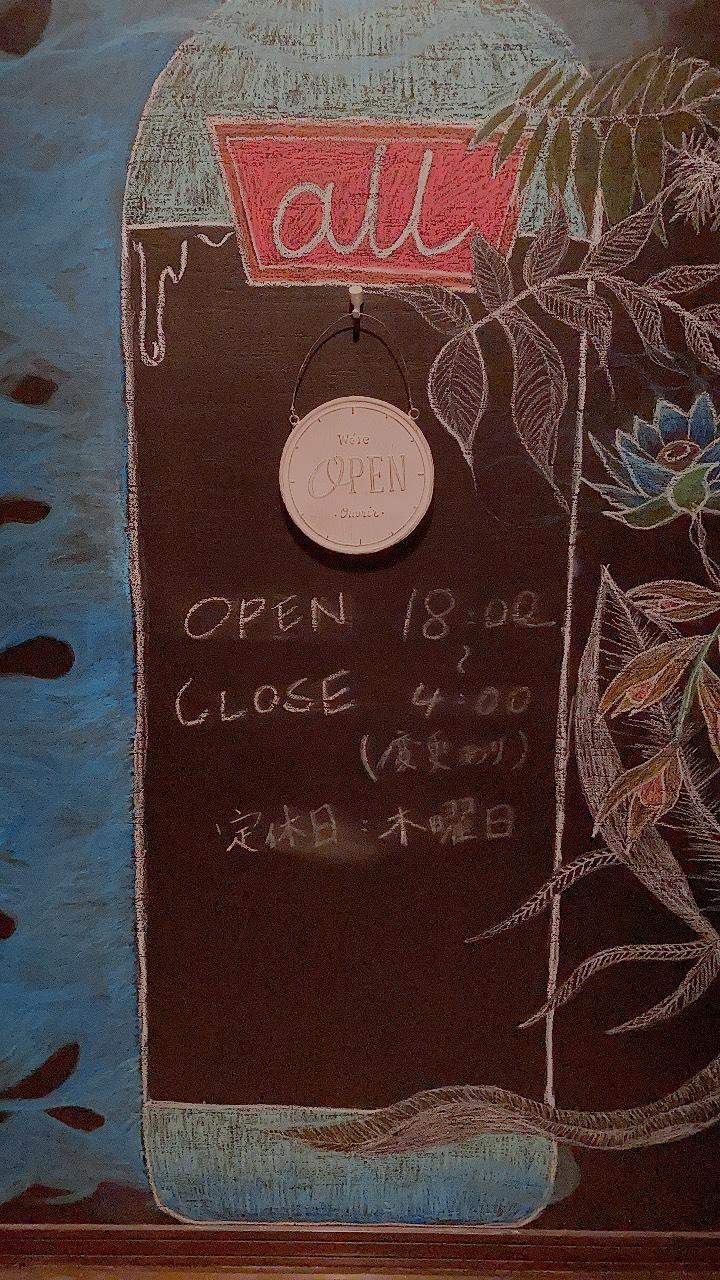 all
We're
OPEN
・Ouvrir・
OPEN 18:00
〜
CLOSE 4:00
(変更あり)
定休日:木曜日